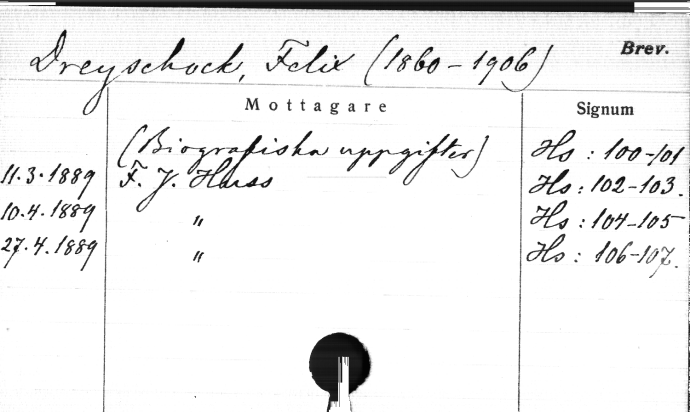 Dreyschock, Felix (1860-1906) Brev.
Mottagare Signum
(Biografiska uppgifter) Hs: 100-101
11.3.1889 F. J. Huss Hs: 102-103.
10.4.1889 " Hs: 104-105
27.4.1889 " Hs: 106-107.